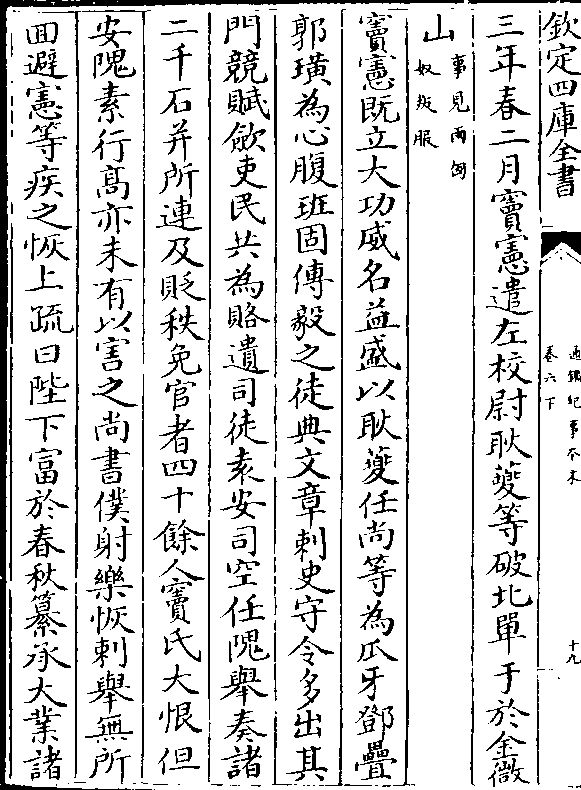 欽定四庫全書
通鑑紀事本末
卷六下
十九
三年春二月竇憲遣左校尉耿夔等破北單于於金微
山
事見兩匈
奴叛服
竇憲既立大功威名益盛以耿夔任尚等為爪牙鄧疊
郭璜為心腹班固傅毅之徒典文章刺史守令多出其
門競賦斂吏民共為賂遺司徒袁安司空任隗舉奏諸
二千石并所連及貶秩免官者四十餘人竇氏大恨但
安隗素行髙亦未有以害之尚書僕射樂恢刺舉無所
回避憲等疾之恢上疏曰陛下富於春秋纂承大業諸